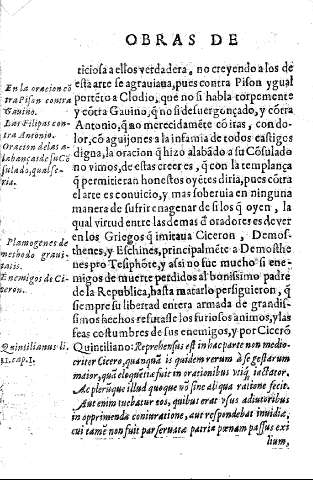 OBRAS DE
ticiosa a ellos verdadera, no creyendo a los de
esta arte se agrauiana, pues contra Pison ygual
portẽto a Clodio, que no si habla torpemente
y cõtra Gauino, q̃ no si desuergonçado, y cõtra
Antonio, q̃ no merecidamẽte cõ iras, con do-
lor, cõ aguijones a la infamia de todos castigos
digna, la oracion q̃ hizo alabãdo a su Cõsulado
no vimos, de estas creeres, q̃ con la templança
q̃ permitieran honestos oyẽtes diria, pues cũtra
el arte es conuicio, y mas soberuia en ninguna
manera de sufrir enagenar de si los q̃ oyen, la
qual virtud entre las demas õ oradores es de ver
en los Griegos q̃ imitaua Ciceron, Demos-
thenes, y Eschines, principalmẽte a Demosthe
nes pro Tesiphõte, y asi no fue mucho si ene-
migos de muerte perdidos al bonissimo padre
de la Republica, hasta matarlo persiguieron, q̃
siempre su libertad entera armada de grandis-
simos hechos refutasse los furiosos animos, y las
feas costumbres de sus enemigos, y por Cicerõ
Quintiliano: Reprehensus est in hac parte non medio-
criter Cicero, quanquã is quidem rerum à se gestarum
maior, quã eloquẽtiæ fuit in orationibus vtiq; iactator.
Ac plerũque illud quoque nõ sine aliqua ratione fecit.
Aut enim tuebatur eos, quibus erat vsus adiutoribus
in opprimenda coniuratione, aut respondebat inuidiæ,
cui tamẽ non fuit par seruata patria pœnam passus exi
lium,
En la oracion cõ
tra Pison contra
Gauino.
Las Filipas con-
tra Antonio.
Oracion de las a-
labanças de su Cõ
sulado, qual se-
ria.
Plamogenes de
methodo graui-
tatis.
Enemigos de Ci-
ceron.
Quintilianus li.
11. cap. 1.